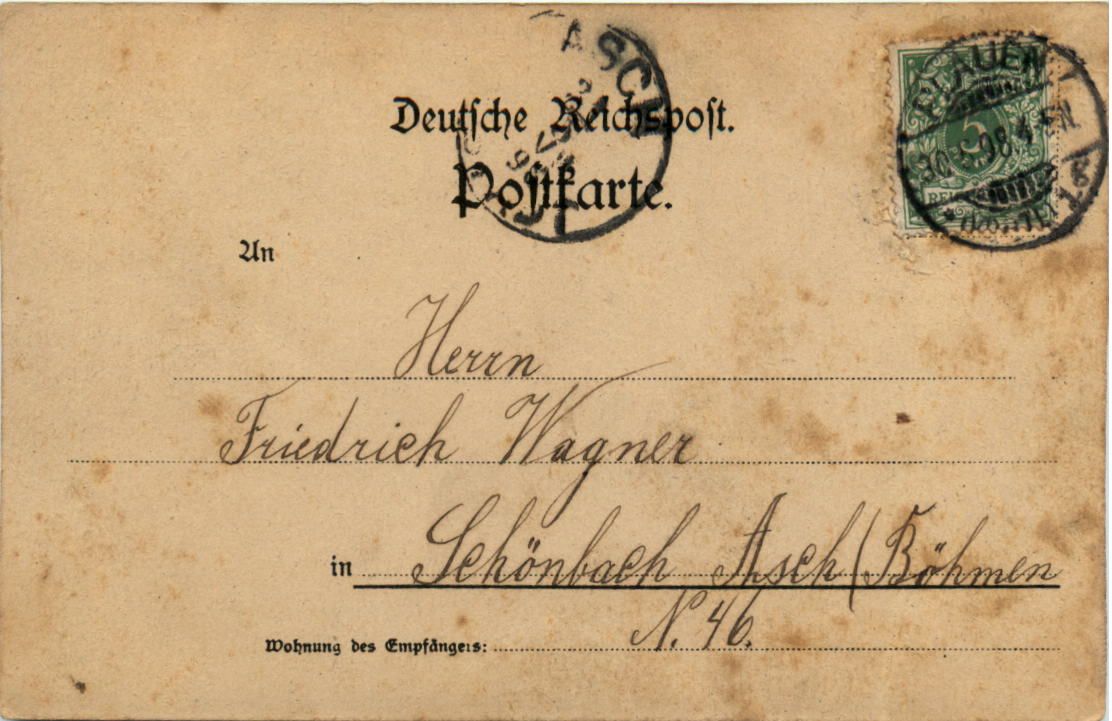 ASCH
PLAUEN
98.4-5N.
5
Deutsche Reichspost.
Postkarte.
An
Herrn
Friedrich Wagner
in Schönbach Asch (Böhmen
N. 46.
Wohnung des Empfängers: